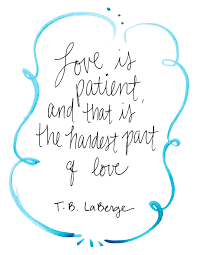 Love is
patient,
and that is
the hardest part
of love
T.B. LaBerge